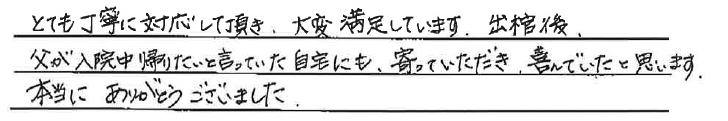 とても丁寧に対応して頂き、大変満足しています。出棺後、
父が入院中帰りたいと言っていた自宅にも、寄っていただき、喜んでいたと思います。
本当に ありがとう ございました。